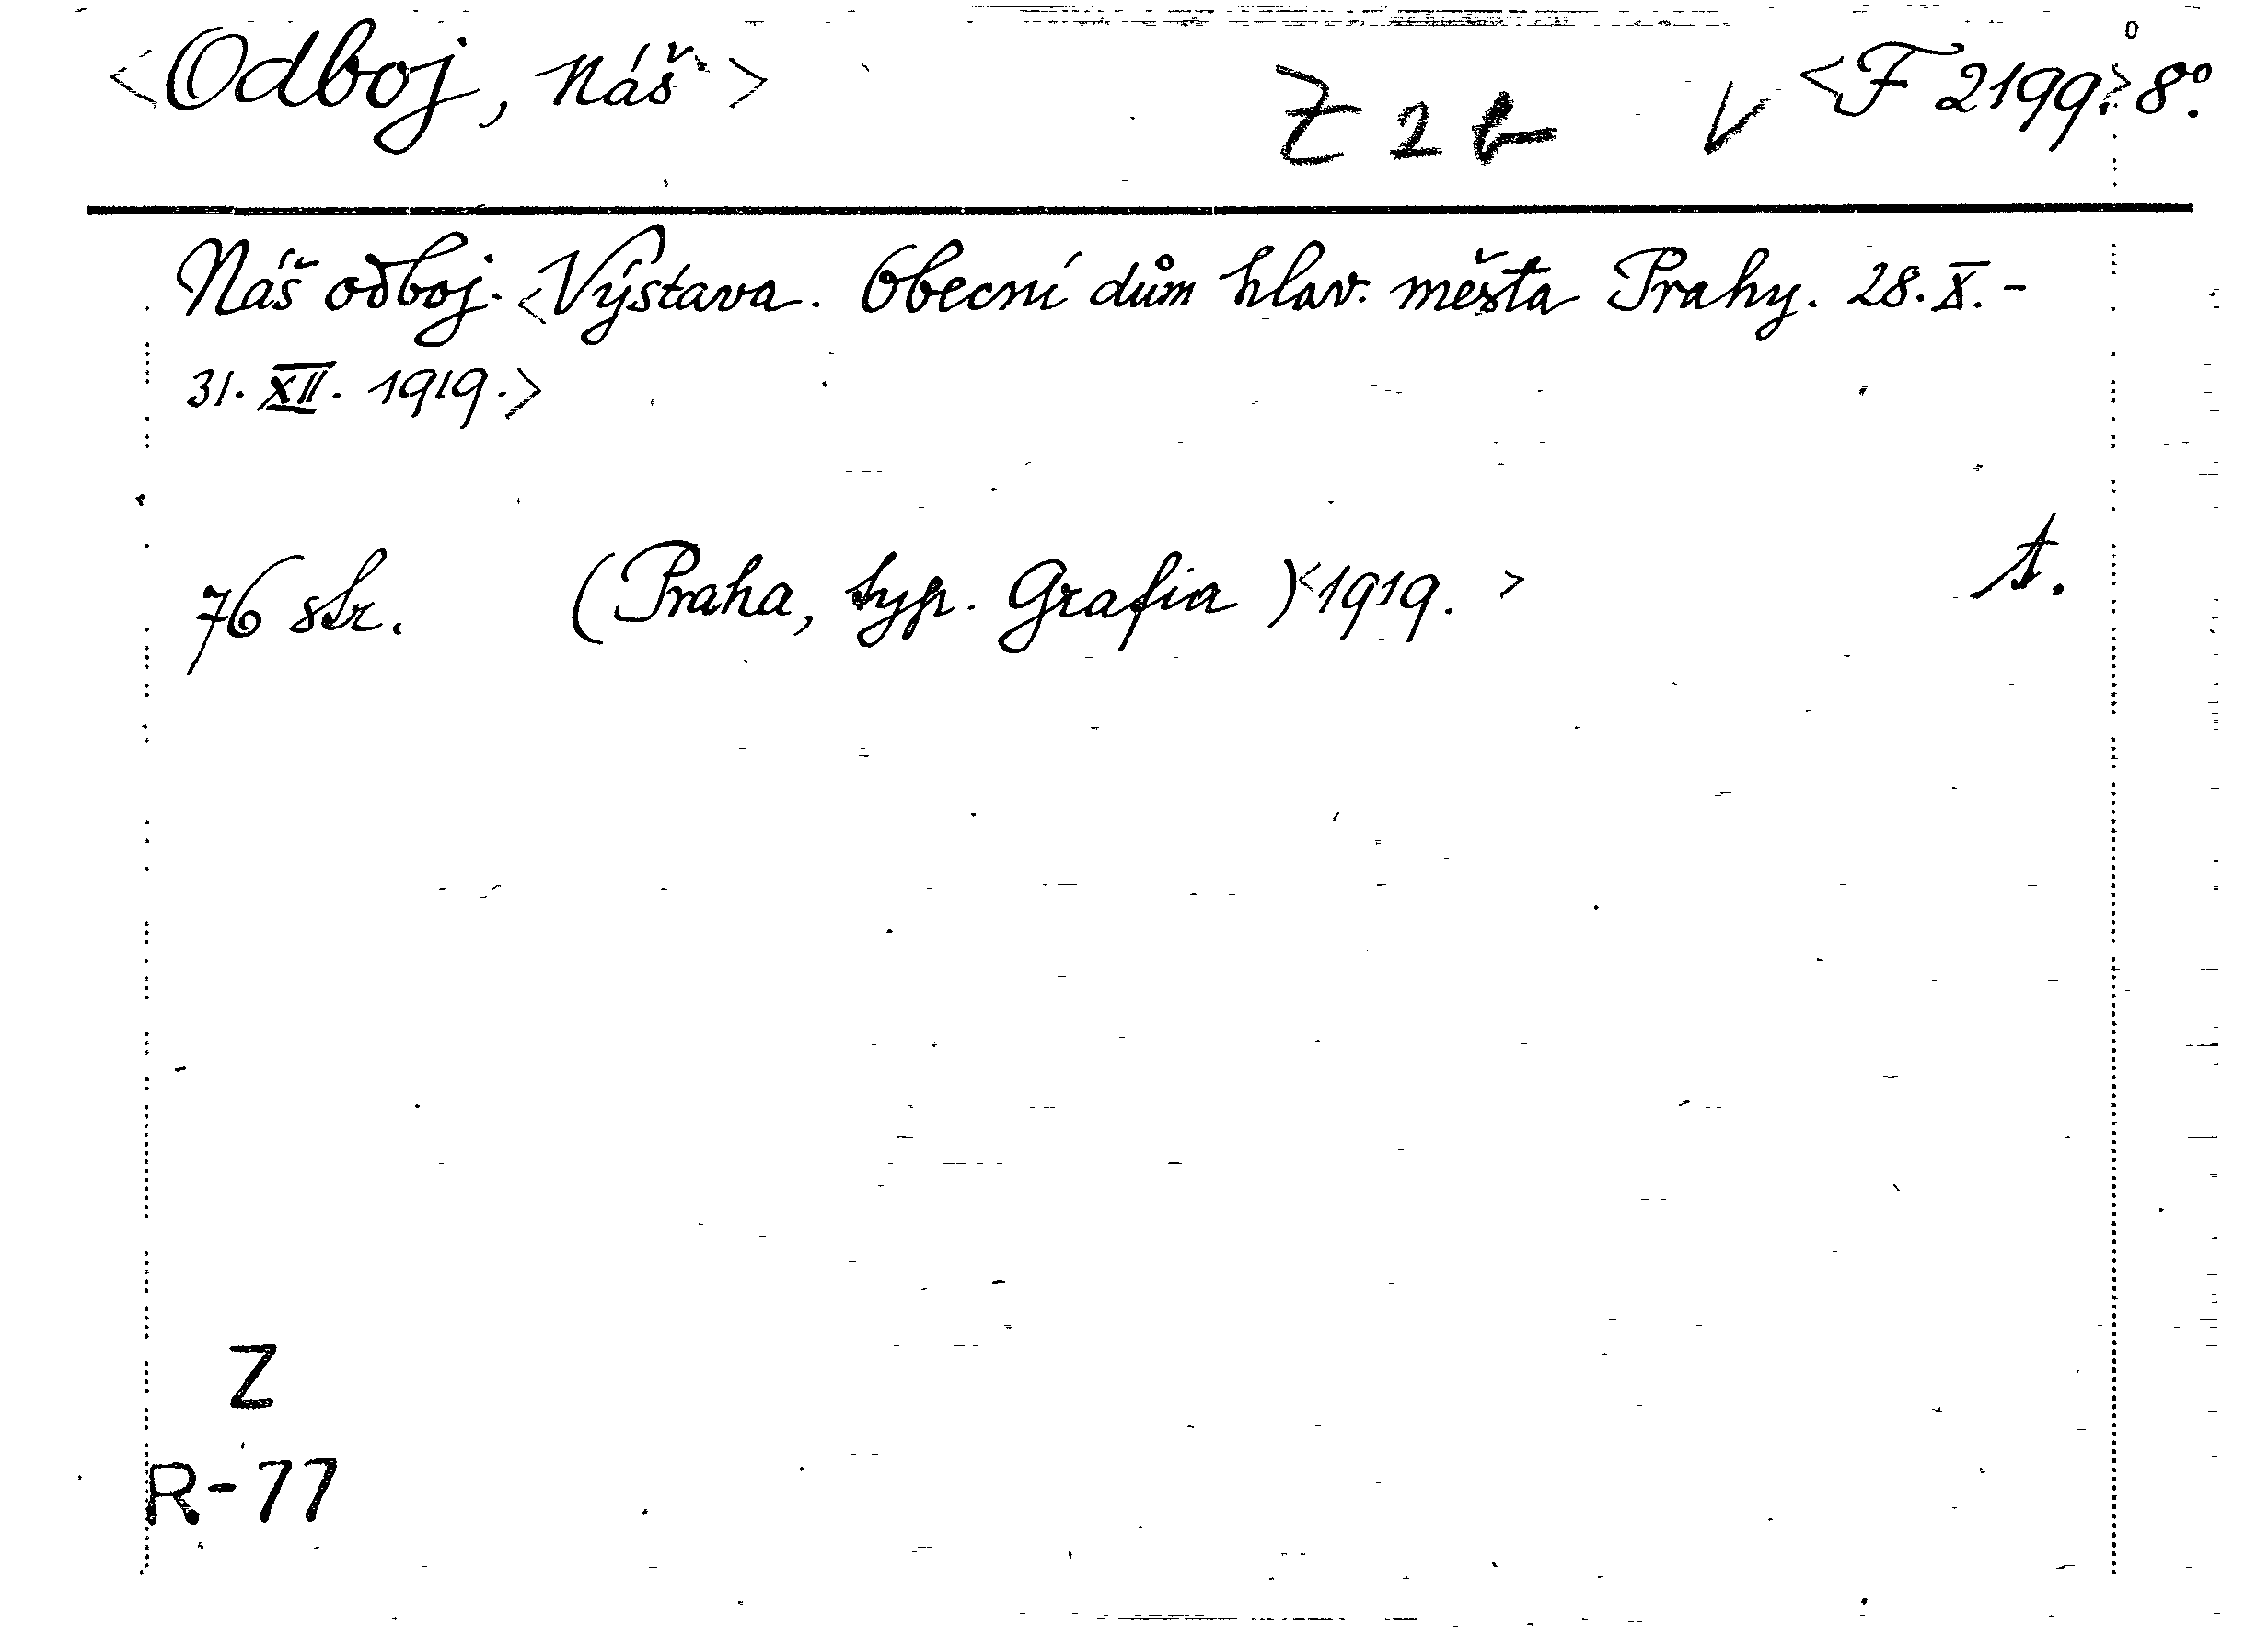 <Odboj, náš> Z 2 b V <F 2199.> 8°.
Náš odboj. <Výstava. Obecní dům hlav. města Prahy. 28. X. -
31. XII. 1919.>
76 str. (Praha, typ. Grafia) <1919. > A.
Z
R-77